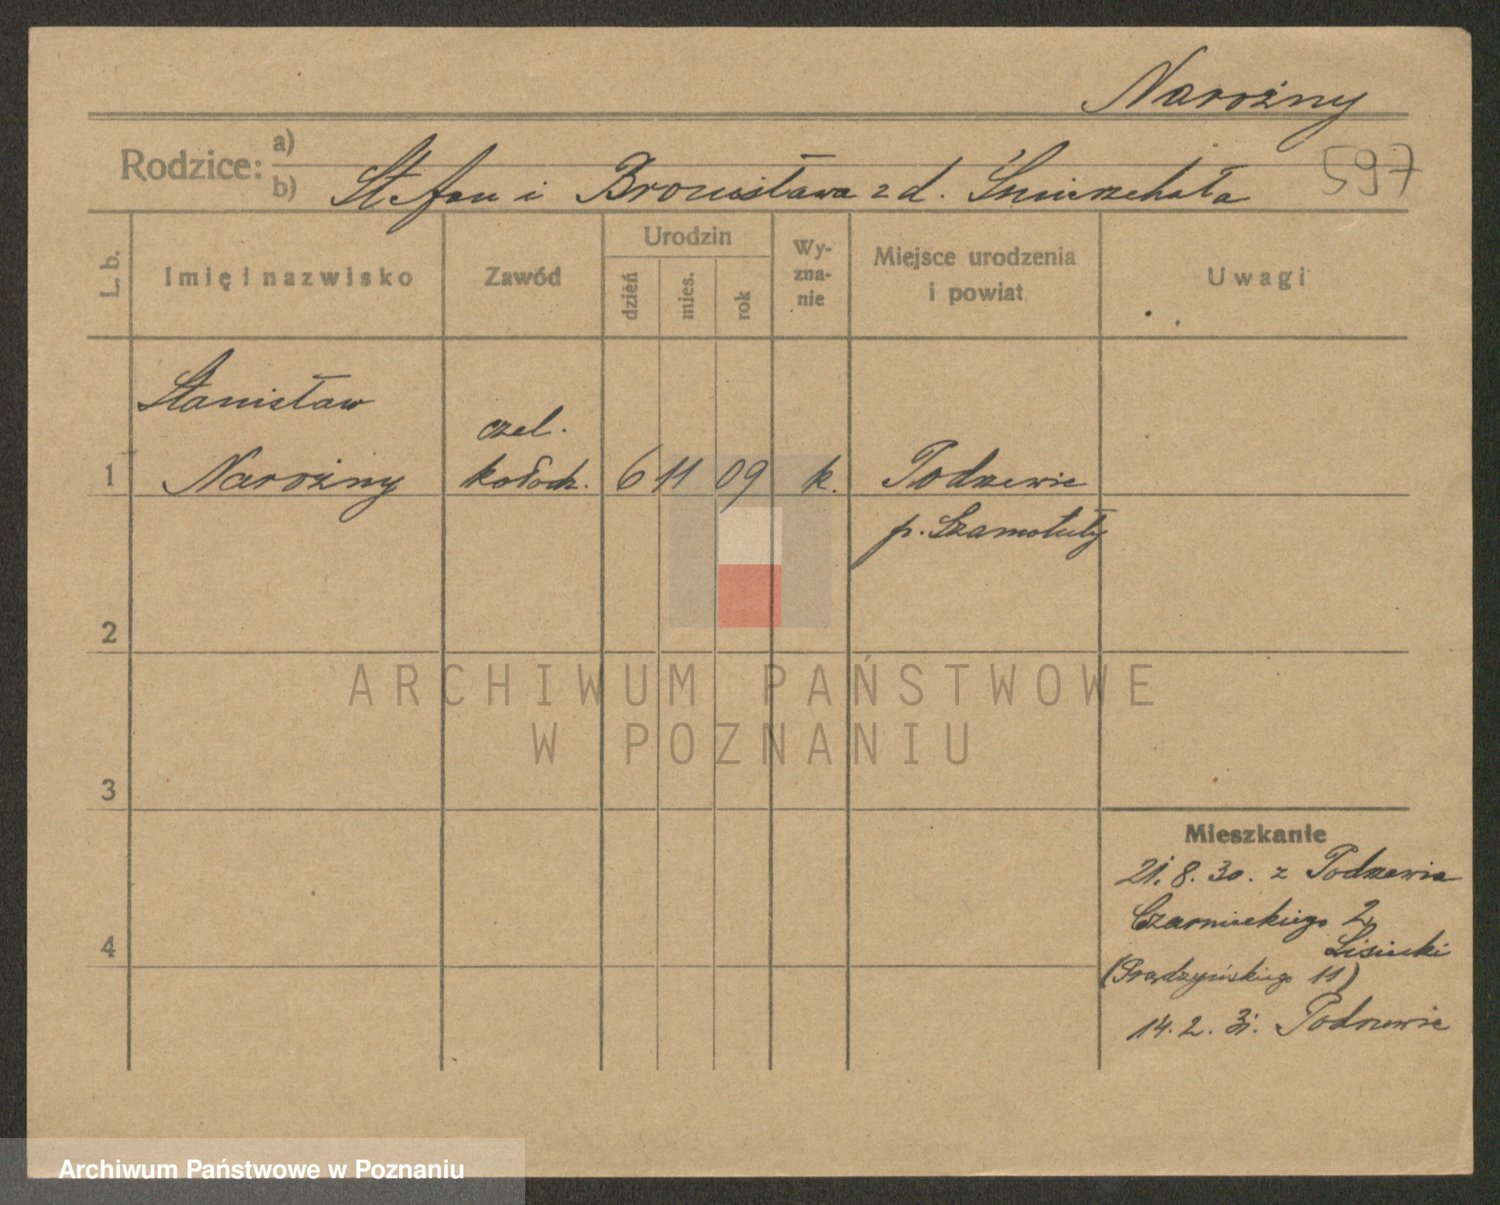 Narożny
Rodzice: a)
b) Stefan i Bronisława z d. Śmierzchała
597
L. b.
Imię i nazwisko
Zawód
Urodzin
dzień
mies.
rok
Wy-
zna-
nie
Miejsce urodzenia
i powiat
Uwagi
Stanisław
czel.
1 Narożny kołodz. 6 11 09 k. Podrzewie
p. Szamotuły
2
3
4
Mieszkanie
21.8.30. z Podrzewia
Czarnieckiego 2
Lisiecki
(Prądzyńskiego 11)
14.2.31. Podrzewie
ARCHIWUM PAŃSTWOWE
W POZNANIU
Archiwum Państwowe w Poznaniu